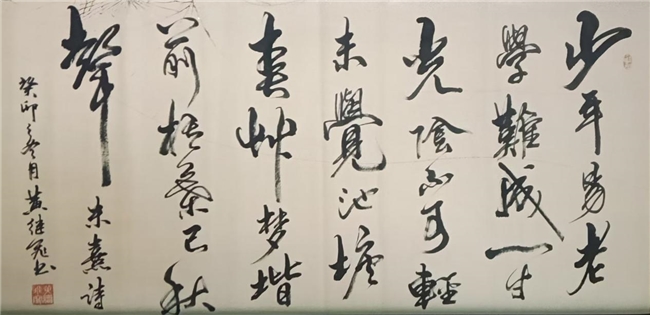 少年易老
學難成一寸
光陰不可輕
未覺池塘
春艸梦堦
前梧葉已秋
聲
朱熹詩
癸卯之冬月黄继书